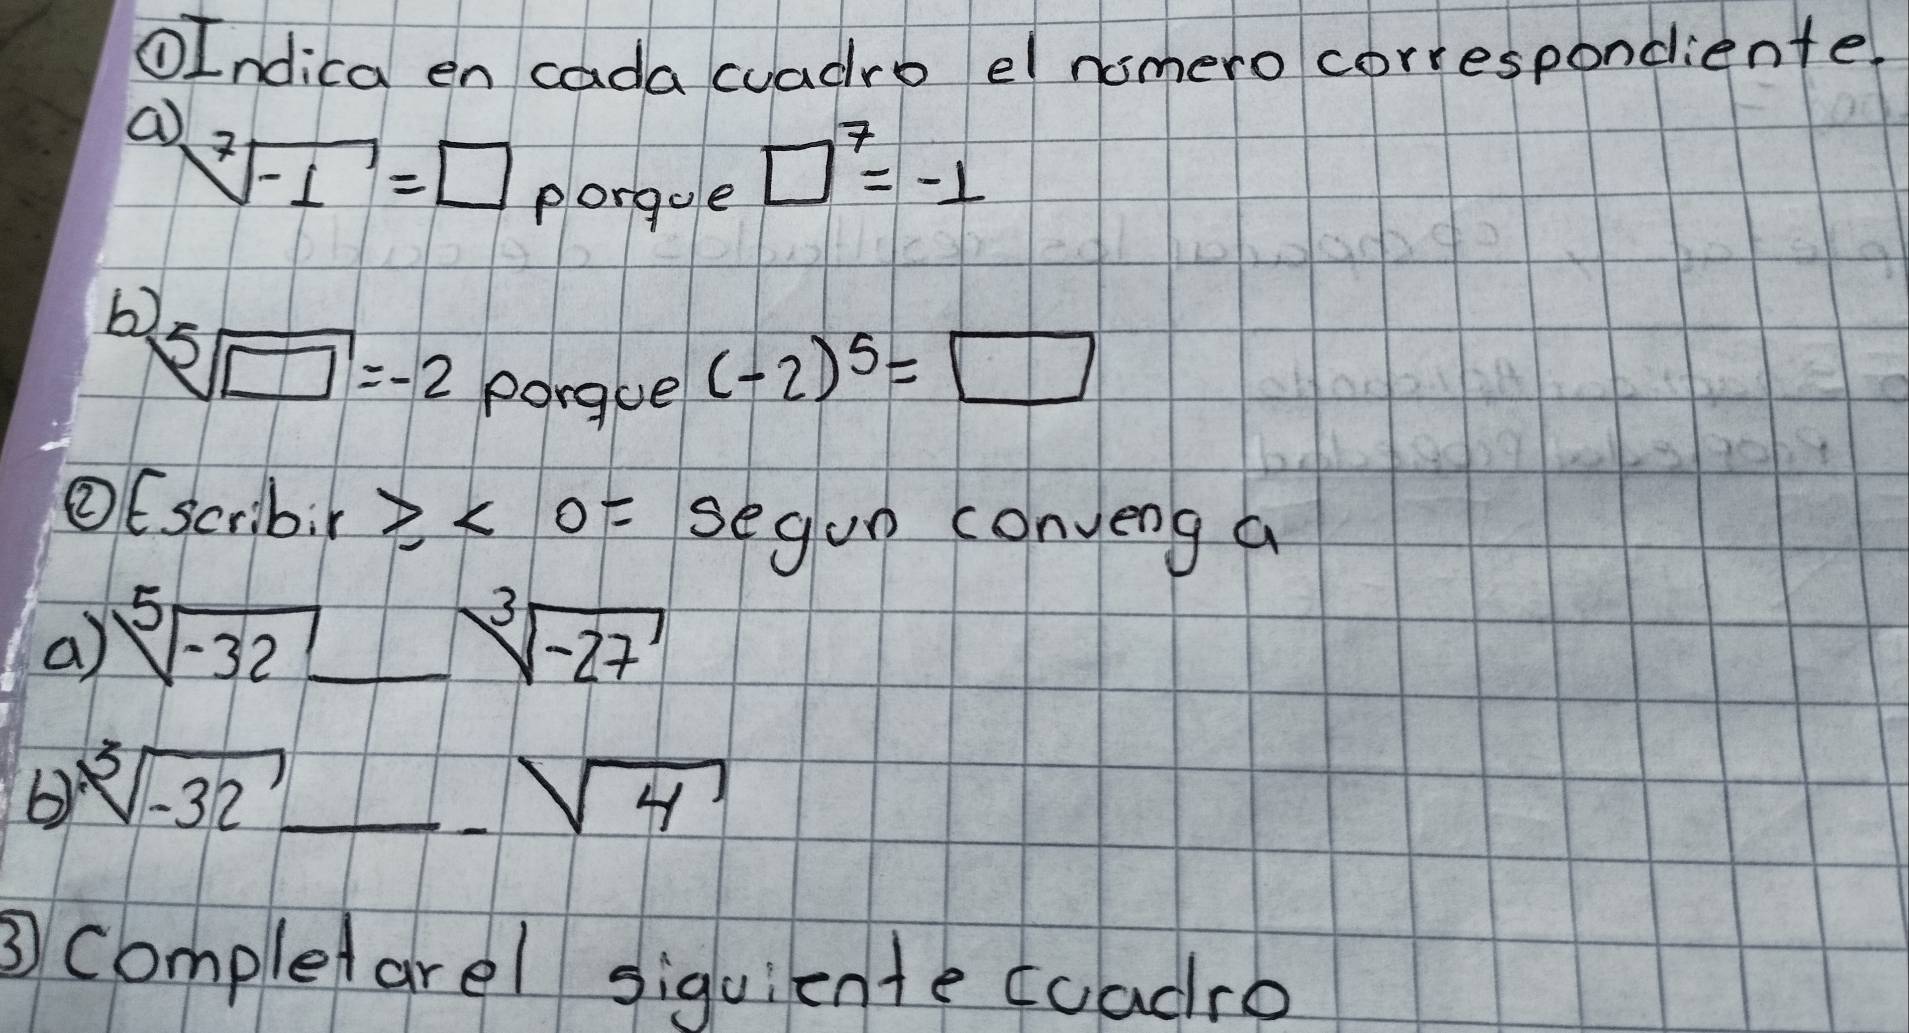 ① Indica en cada cuadro el número correspondiente.
a) ⁷√-1 = □ porque □⁷ = -1
b) ⁵√□ = -2 porque (-2)⁵ = □
② Escribir >, < o = segun convenga
a) ⁵√-32 ___ ³√-27
b) ³√-32 ____ √4
3) Completar el siguiente cuadro